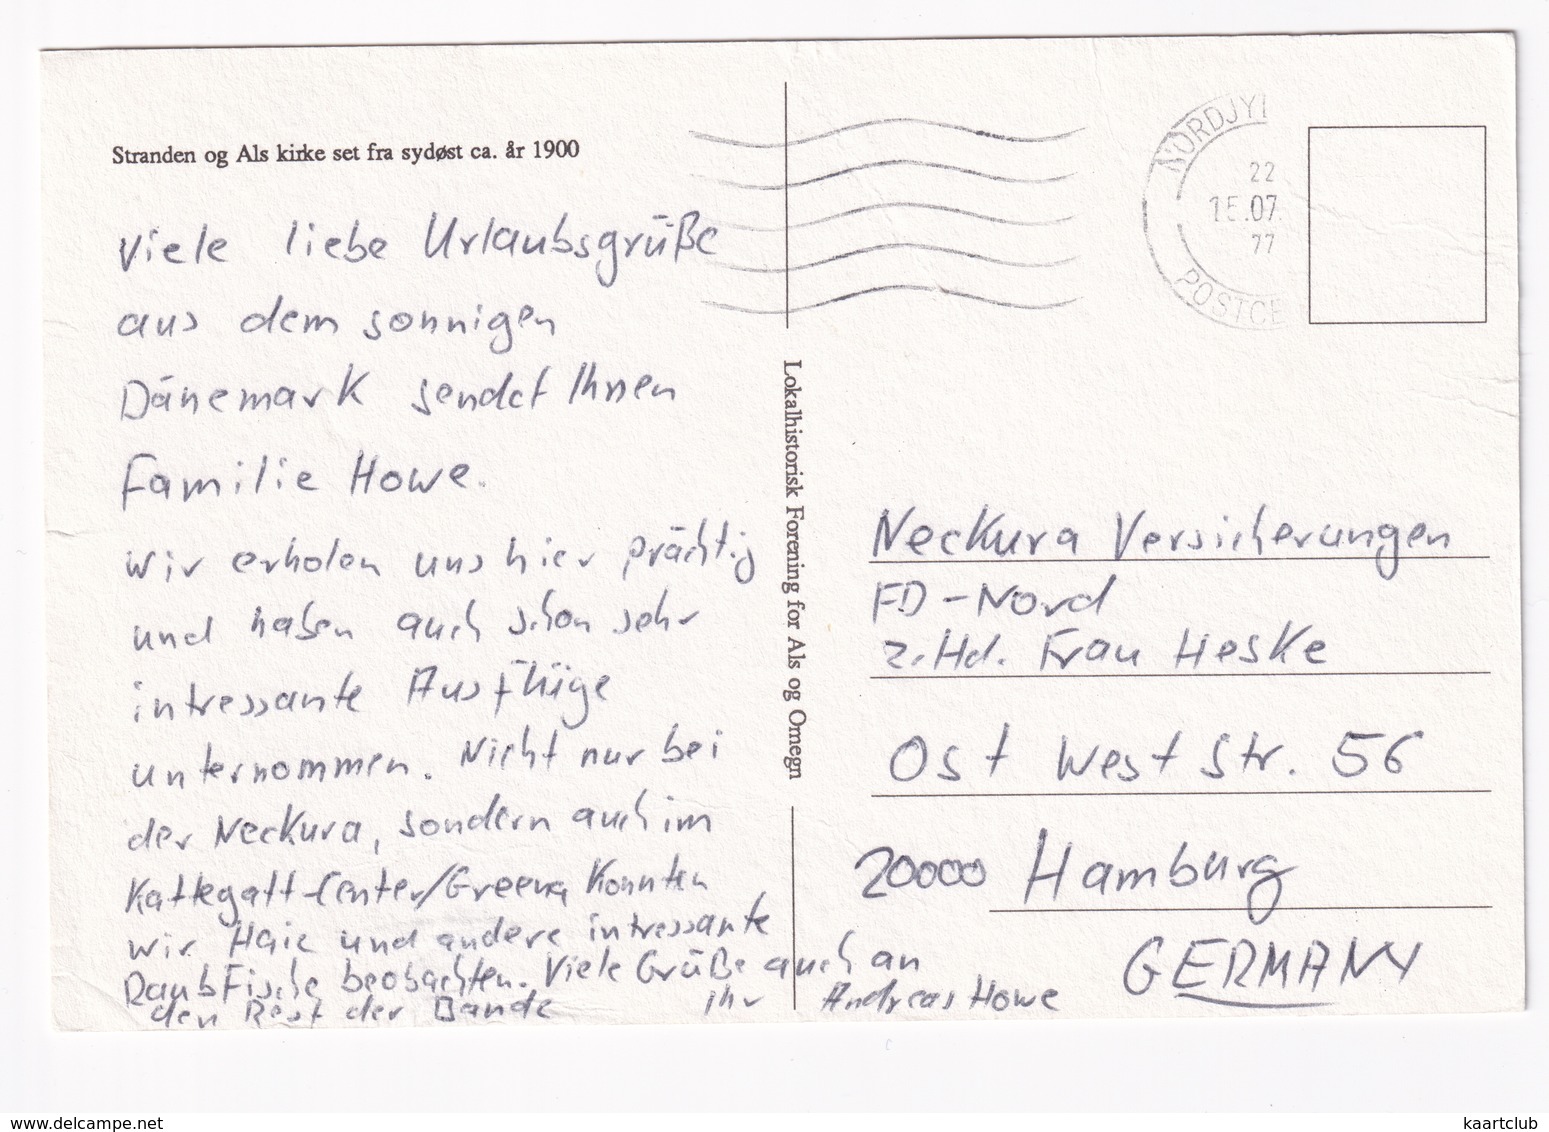 Stranden og Als kirke set fra sydøst ca. år 1900
Viele liebe Urlaubsgrüße
aus dem sonnigen
Dänemark sendet Ihnen
Familie Howe.
Wir erholen uns hier prächtig
und haben auch schon sehr
intressante Ausflüge
unternommen. Nicht nur bei
der Neckura, sondern auch im
Kattegatt-Center/Greena konnten
wir Haie und andere intressante
Raubfische beobachten. Viele Grüße auch an
den Rest der Bande Ihr Andreas Howe
Lokalhistorisk Forening for Als og Omegn
NORDJY
22
15.07.
77
POSTCE
Neckura Versicherungen
FD-Nord
z.Hd. Frau Heske
Ost West Str. 56
20000 Hamburg
GERMANY
www.delcampe.net
kaartclub